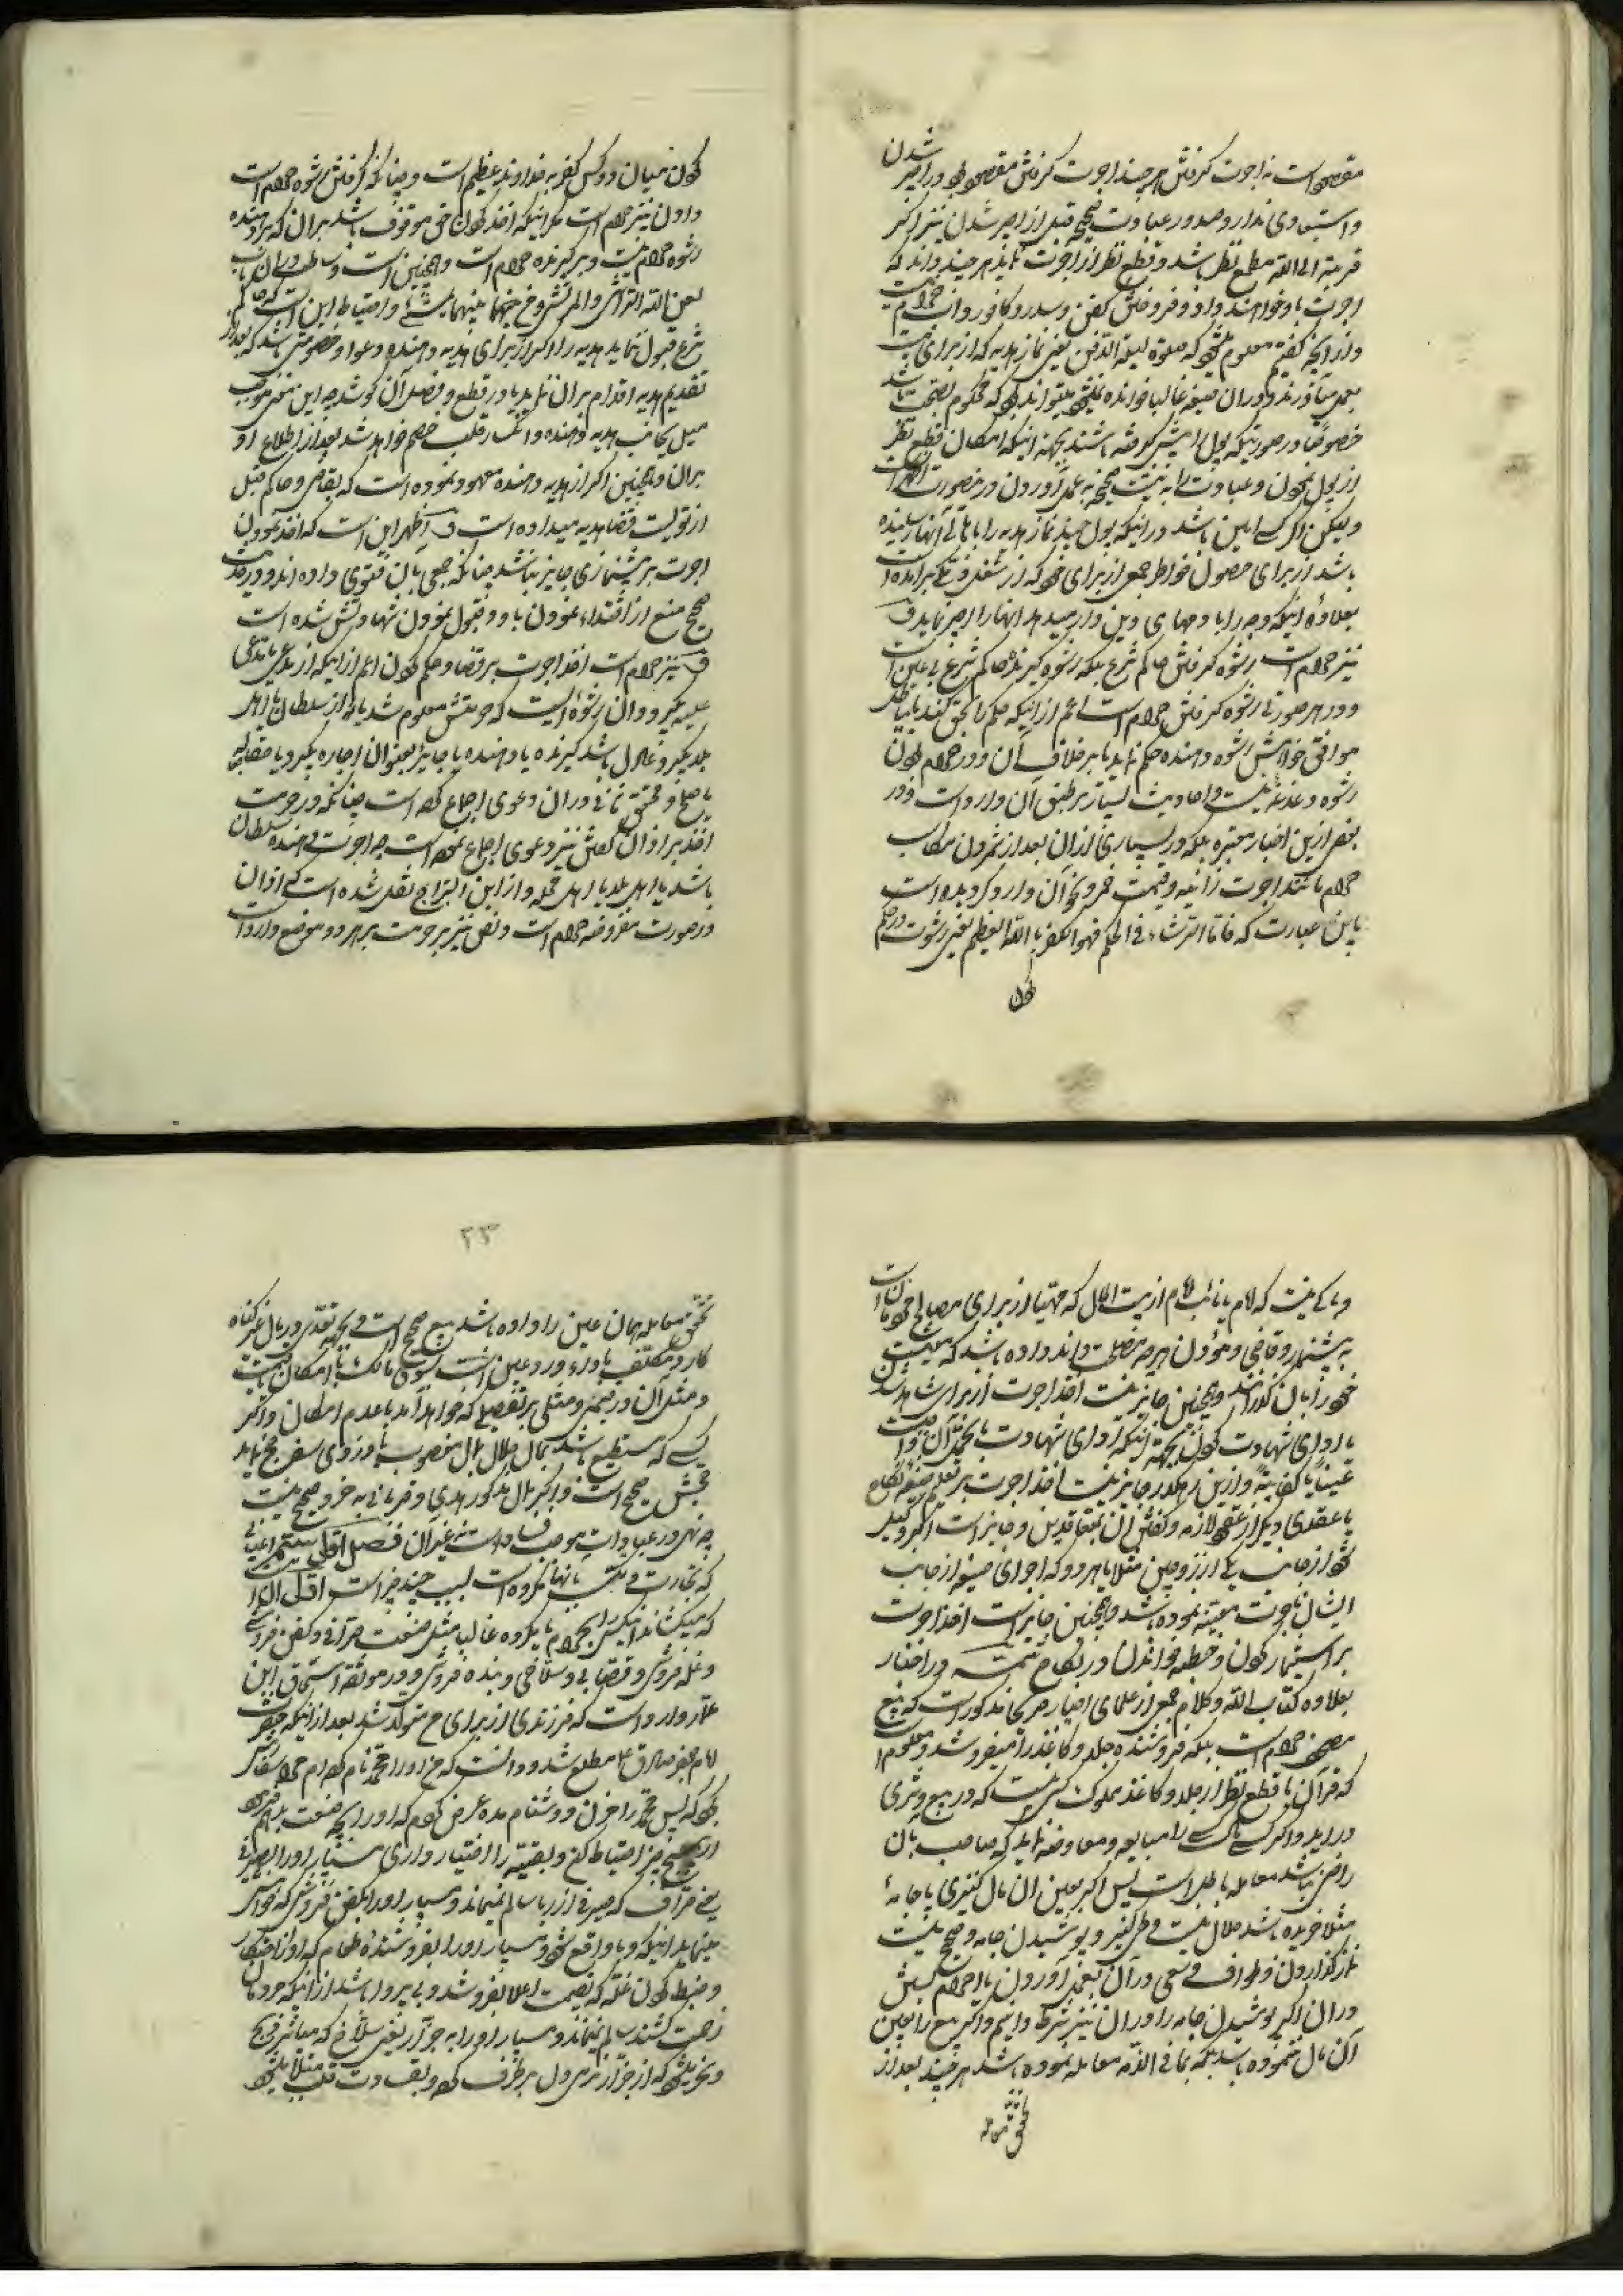 مقصود است نه اجرت گرفتن هر چند اجرت گرفتن مقصود بود در اجیر شدن
و استبعادی ندارد صدور عبادت صحیحه قبل از اجیر شدن نیز اگر
قربة الی الله مطمح نظر باشد و قطع نظر از اجرت نماید هر چند داند که
اجرت باو خواهند داد و فروختن کفن و سدر و کافور و آب حرام نیست
و از آنچه گفتیم معلوم میشود که صلوة لیلة الدفن یعنی نماز هدیه که از برای میت
بعمل میآورند و در آن صیغه غالبا خوانده نمیشود میتواند بود که محکوم بصحت باشد
خصوصا در صورتیکه پول را پیش گرفته باشند بجهة اینکه امکان قطع نظر
از پول نمودن و عبادت را به نیت صحیحه بعمل آوردن در اینصورت اظهر است
ولیکن اگر کسی امین باشد در اینکه پول چند نماز هدیه را باهالی آنها رسانیده
باشد از برای حصول خواطر جمعی از برای خود که از شغل ذمگی برآمده است
بعلاوه اینکه وجه را با دمهای دین دار میدهد آنها را اجیر نماید ف
نیز حرام است رشوه گرفتن حاکم شرع بلکه رشوه گیرنده حاکم شرع نمی‌باشد
و در هر صورت رشوه گرفتن حرام است اعم از اینکه حکم را بحق کند یا بباطل
موافق خواهش رشوه دهنده حکم نماید یا بر خلاف آن و در حرام بودن
رشوه دغدغه نیست و احادیث بسیار بر طبق آن وارد است و در
بعض ازین اخبار معتبره بلکه در بسیاری از آن بعد از شمردن مکاسب
حرام مانند اجرت زانیه و قیمت خمر و نحو آن وارد گردیده است
باین عبارت که فاما الرشاء فی الحکم فهو الکفر بالله العظیم یعنی رشوت در حکم
کردن
کردن میان دو کس کفر به خداوند عظیم است و چنانکه گرفتن رشوه حرام است
دادن نیز حرام است مگر اینکه اخذ کردن حق موقوف باشد بر آن که بر دهنده
رشوه حرام نیست و بر گیرنده حرام است و همچنین است وساطت در آن باب
لعن الله الراشی و المرتشی و من بینهما یمشی و احتیاط این است که حاکم
شرع قبول ننماید هدیه را اگر از برای هدیه دهنده دعوا و خصومتی باشد که بعد از
تقدیم هدیه اقدام بر آن نماید یا در قطع و فصل آن کوشد چه این معنی موجب
میل بجانب هدیه دهنده و انکسار قلب خصم خواهد شد بعد از اطلاع او
بر آن و همچنین اگر از هدیه دهنده معهود نبوده است که بقاضی و حاکم قبل
از تولیت قضا هدیه میداده است ف اظهر این است که اخذ نمودن
اجرت بر پیشنمازی جایز نباشد چنانکه جمعی بآن فتوی داده اند و در حدیث
صحیح منع از اقتداء نمودن باو و قبول نمودن شهادتش شده است
ف نیز حرام است اخذ اجرت بر قضا و حکم کردن اعم از اینکه از مدعی یا مدعی
علیه بگیرد و آن رشوه است که حرمتش معلوم شد یا از سلطان یا اهل
بلد بگیرد و عادل باشد گیرنده یا دهنده یا جایر بعنوان اجاره بگیرد یا جعاله
یا صلح و محقق ثانی در آن دعوی اجماع کرده است چنانکه در حرمت
اخذ بر اذان گفتن نیز دعوی اجماع نموده است چه اجرت دهنده سلطان
باشد یا اهل بلد یا اهل محله و از ابن البراج نقل شده است که اذان
در صورت مفروضه حرام است و نص نیز بر حرمت بر هر دو موضع وارد است
و باکی نیست که امام یا نائب امام از بیت المال که مهیا از برای مصالح مسلمانان است
به پیشنماز و قاضی و مؤذن بهر چه مصلحت داند داده باشد که معیشت
خود را بآن گذرانند و همچنین جایز نیست اخذ اجرت از برای شاهد شدن
یا ادای شهادت کردن بجهة اینکه ادای شهادت یا تحمل آن واجب است
عینا یا کفایة و ازین رهگذر جایز نیست اخذ اجرت بر تعلیم صیغه نکاح
یا عقدی دیگر از عقود لازمه و گفتن آن بمتعاقدین و جایز است اگر وکیل
شود از جانب یکی از زوجین مثلا یا هر دو که اجرای صیغه از جانب
ایشان باجرت معینه نموده باشد و همچنین جایز است اخذ اجرت
بر استیمار کردن و خطبه خواندن در نکاح تتمه در اخبار
بعلاوه کتاب الله و کلام جمعی از علمای اخیار صریحا مذکور است که بیع
مصحف حرام است بلکه فروشنده جلد و کاغذ را میفروشد و معلوم است
که قرآن با قطع نظر از جلد و کاغذ مملوک کسی نیست که در بیع و شری
در آید و اگر کسی با کسی را مبایعه و معاوضه نماید که صاحب بآن
راضی نباشد معامله باطل است پس اگر بعین آن مال کنیزی یا جامهٔ
مثلا خریده باشد حلال نیست وطی کنیز و پوشیدن جامه و صحیح نیست
نماز گذاردن و طواف و سعی در آن بعمل آوردن یا احرام بستن
در آن اگر پوشیدن جامه را در آن نیز شرط دانیم و اگر بیع را بعین
آن مال ننموده باشد بلکه بما فی الذمه معامله نموده باشد هر چند بعد از
تحقق معامله
۲۳
تحقق معامله همان عین را داده باشد بیع صحیح است و بجهة تعدی در مال غیر گناه
کار و مکلف باداء و رد عین است بسوی مالک با امکان
و مثل آن در قیمی و مثلی بر تفصیلی که خواهد آمد با عدم امکان و اگر
کسی که مستطیع باشد بمال حلال بمال مغصوب یا دزدی سفر حج نماید
حجش صحیح است و اگر بمال مذکور هدی و قربانی بخرد صحیح نیست
چه نهی در عبادات موجب فساد است نه غیر آن فصل اول
که تجارت و تکسب بآنها مکروه است بسبب چند چیز است اول
که میکشاند انسان را بحرام یا بمکروه غالبا مثل صنعت صرافی و کفن فروشی
و غله فروشی و قصابی و سلاخی و بنده فروشی و در موثقه اسحاق ابن
عمار وارد است که فرزندی از برای من متولد شد بعد از اینکه حضرت
امام جعفر صادق ع مطلع شد و دانست که من او را محمد نام کرده ام
فرمود که پس محمد را مزن و دشنام مده عرض کردم که او را بچه صنعت بسپارم فرمود
از پنج چیز احتیاط کن و بقیه را اختیار داری مسپار او را بصیرفی
یعنی صراف که صیرفی از ربا سالم نمیماند و مسپار او را بکفن فروش که خوش
مینماید اینکه وبا واقع شود و مسپار او را بفروشندهٔ طعام که او از احتکار
و ضبط کردن غله که بقیمت اعلا بفروشد و بی پروا باشد از اینکه مردمان
زحمت کشند سالم نمیماند و مسپار او را به جزار یعنی سلاخ که مباشر ذبح
و نحر میشود که از جزار نرمی دل بر طرف کرده و بقساوت قلب مبتلا میشود